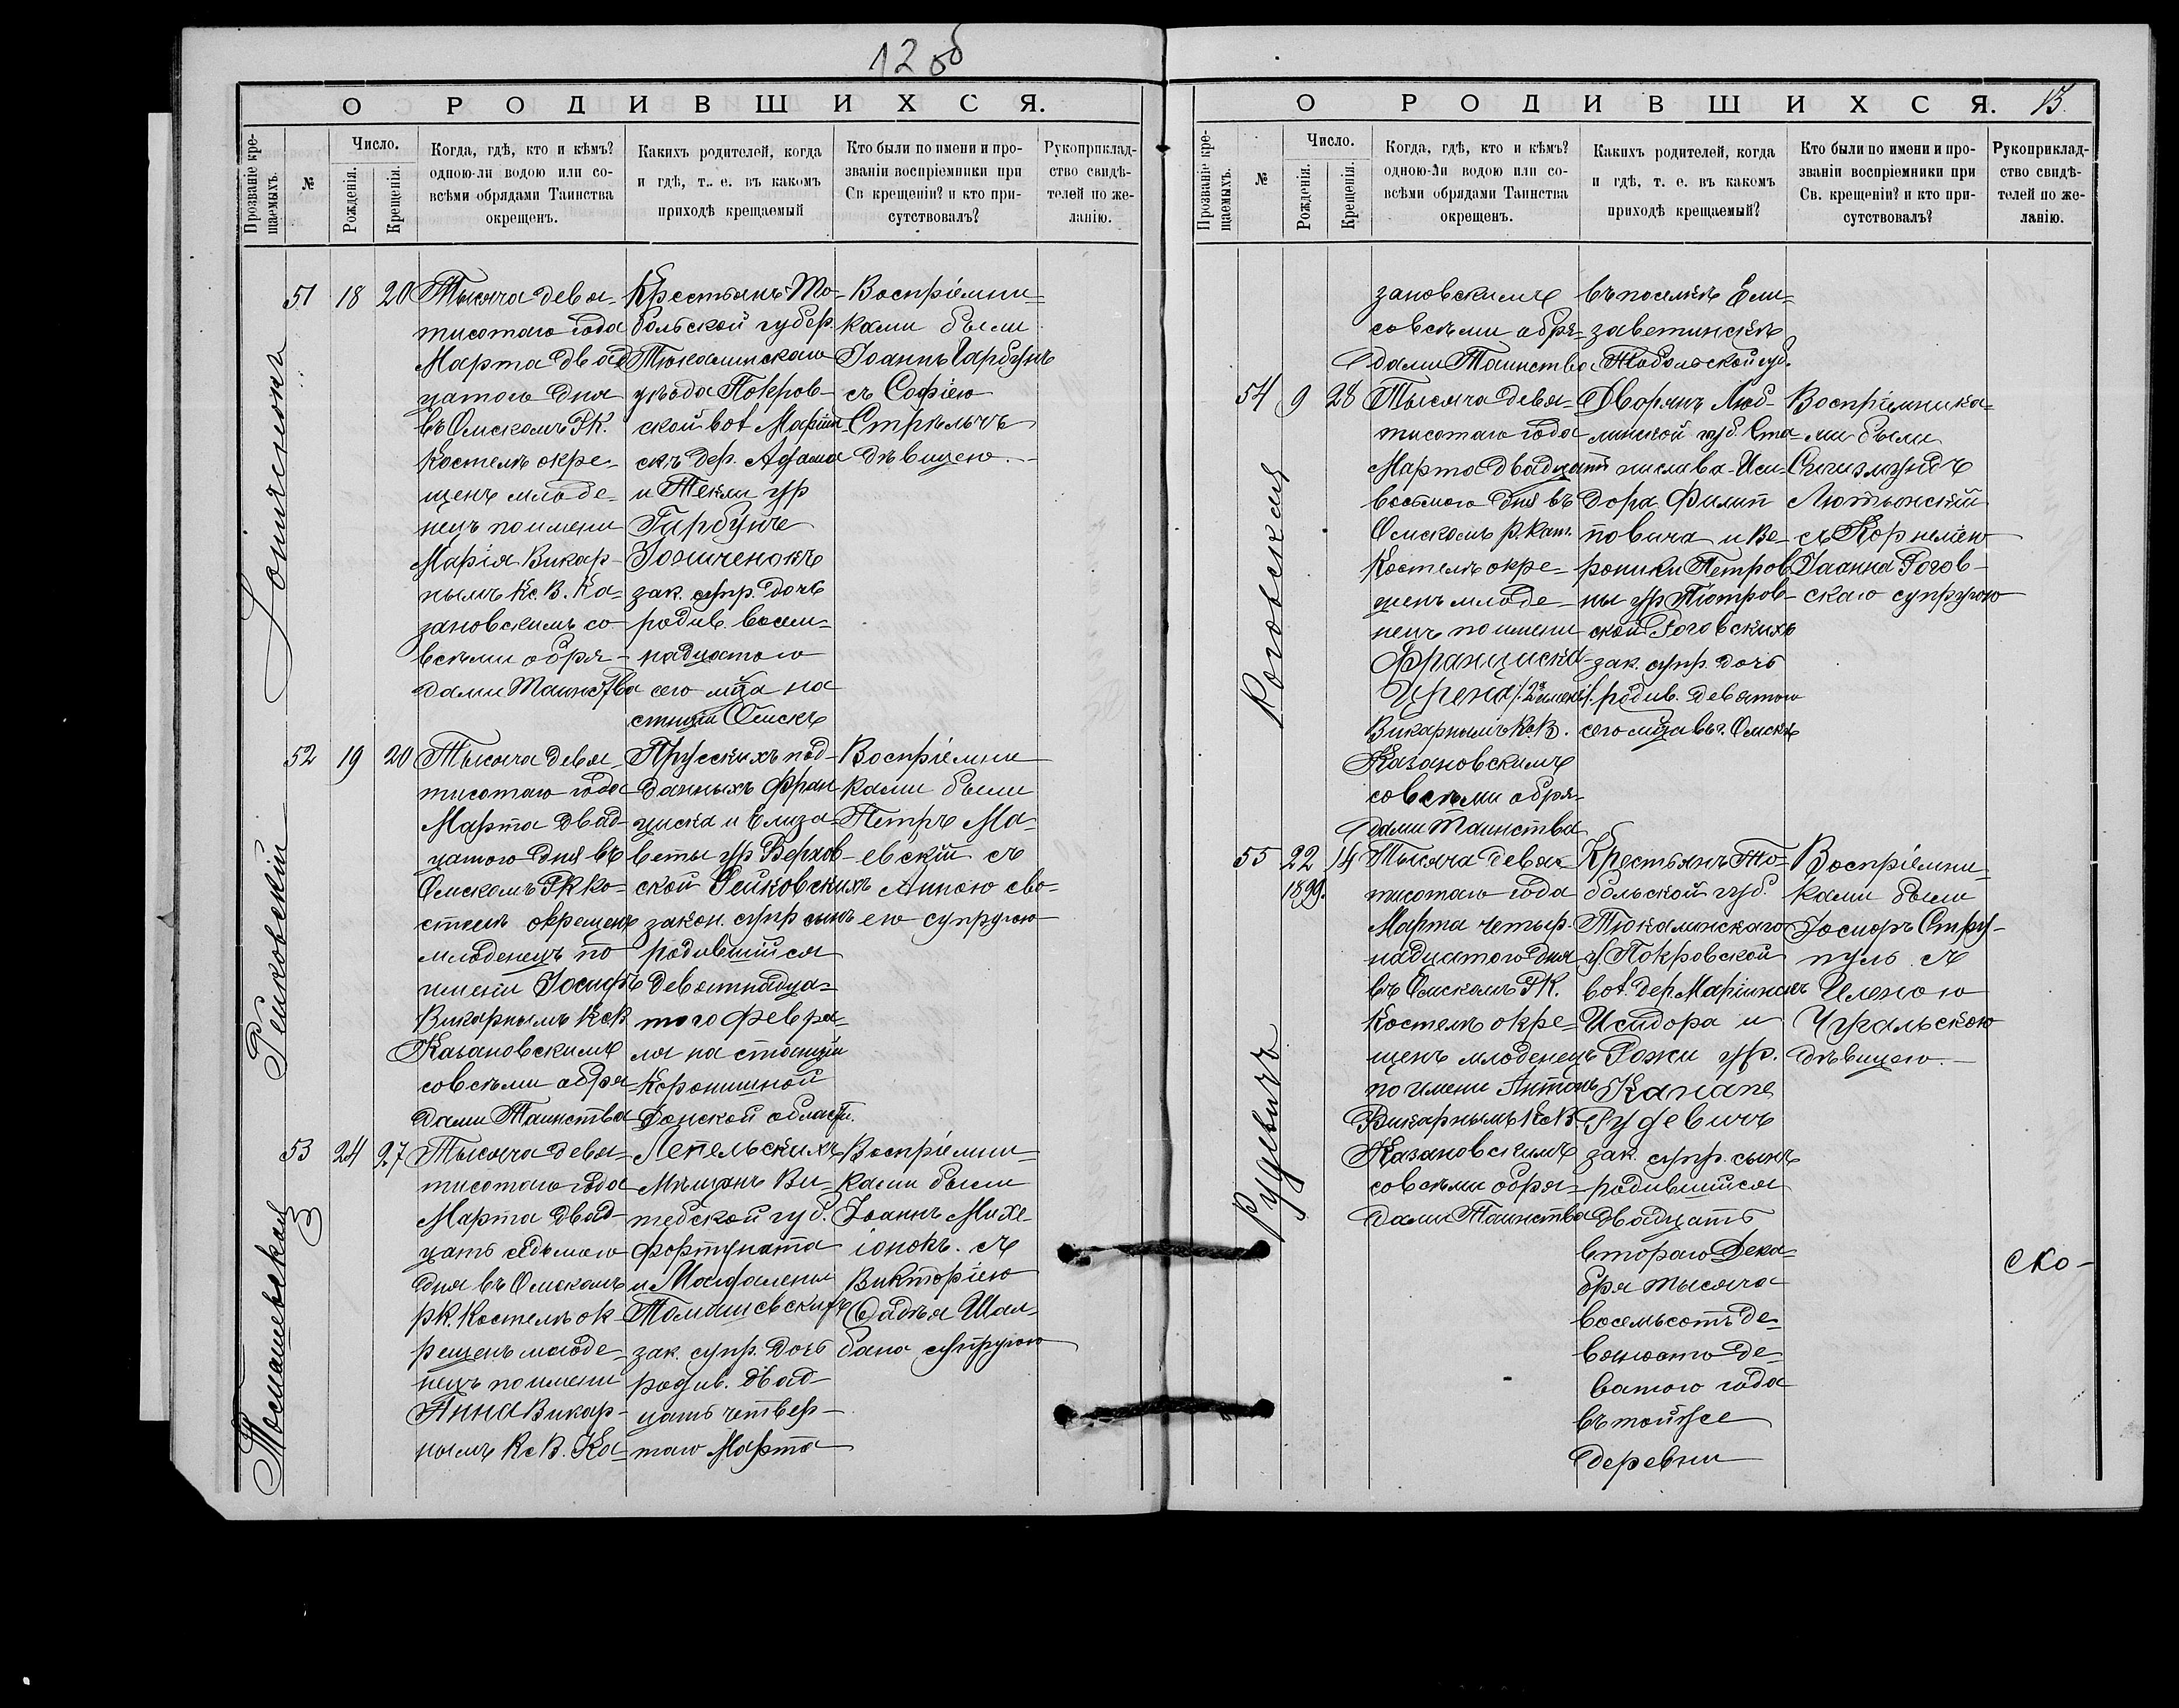 12 об
О РОДИВШИХСЯ.
Прозваніе кре-
щаемыхъ.
№
Число.
Рожденія.
Крещенія.
Когда, гдѣ, кто и кѣмъ?
одною-ли водою или со-
всѣми обрядами Таинства
окрещенъ.
Какихъ родителей, когда
и гдѣ, т. е. въ какомъ
приходѣ крещаемый
Кто были по имени и про-
званіи воспріемники при
Св крещеніи? и кто при-
сутствовалъ?
Рукоприклад-
ство свидѣ-
телей по же-
ланію.
51 18 20
Тысяча девя-
тисотаго года
Марта двад
цатаго дня
въ Омскомъ РК.
Костелѣ окре-
щенъ младе-
нецъ по имени
Марія Викар-
нымъ Кс. В. Ка-
зановскимъ со
всѣми обря-
дами Таинства
Крестьянъ То-
больской губер.
Тюкалинскаго
уѣзда Покров-
ской вol Маріин-
скъ дер. Адама
и Текли ур
Гарбунъ
зак. супр. дочь
родив. восем-
надцатаго
сего мца на
станціи Омскъ
Воспріемни-
ками были
Іоаннъ Гарбунъ
съ Софіею
дѣвицею.
52 19 20
Рейковскій
Тысяча девя-
тисотаго года
Марта двад-
цатаго дня въ
Омскомъ РК ко-
стелѣ окрещенъ
младенецъ по
имени Іосифъ
Викарнымъ КсВ
Казановскимъ
со всѣми обря-
дами Таинства
Прусскихъ под-
данныхъ Фран
циска и Елиза-
веты ур Верхов-
ской Рейковскихъ
закон. супр сынъ
родившійся
девятнадца-
таго февра-
ля на станціи
Донской области.
Воспріемни
ками были
Петръ Ма-
евскій съ
Анною сво-
ею супругою
53 24 27
Томашевская
Тысяча девя-
тисотаго года
Марта двад-
цать седьмаго
дня въ Омскомъ
рК. Костелѣ ок-
рещенъ младе-
нецъ по имени
Анна Викар-
нымъ Кс В. Ка-
Лепельскихъ
Мѣщанъ Ви-
тебской губ.
Фортуната
и Магдалены
Томашевскихъ
зак. супр. дочь
родив. двад-
цать четвер-
таго Марта
Воспріемни-
ками были
Іоаннъ Михе-
іонокъ. съ
Викторіею
супругою
О РОДИВШИХСЯ. 13.
Прозваніе кре-
щаемыхъ.
№
Число.
Рожденія.
Крещенія.
Когда, гдѣ, кто и кѣмъ?
одною-ли водою или со-
всѣми обрядами Таинства
окрещенъ.
Какихъ родителей, когда
и гдѣ, т. е. въ какомъ
приходѣ крещаемый?
Кто были по имени и про-
званіи воспріемники при
Св. крещеніи? и кто при-
сутствовалъ?
Рукоприклад-
ство свидѣ-
телей по же-
ланію.
зановскимъ
со всѣми обря-
дами Таинства
въ поселкѣ Ели-
заветинскѣ
Тобольской губ.
54 9 28
Роговская
Тысяча девя-
тисотаго года
Марта двадцать
восьмого дня въ
Омскомъ р. кат.
Костелѣ окре-
щенъ младе-
нецъ по имени
Франциска
Ирена /:2хъ именъ:/
Викарнымъ Кс. В.
Казановскимъ
со всѣми обря-
дами Таинства
Дворянъ Люб-
линской губ. Ста-
нислава-Иси-
дора Филип
повича и Ве-
роники Петров
ны ур Піотров-
ской Роговскихъ
зак. супр. дочь
родив. девятаго
сего мца въ г. Омскѣ
Воспріемника-
ми были
Сигизмундъ
Лютынскій
съ Корнеліею
Іоанна Рогов-
скаго супругою
55 22 14
1899.
Рудевичъ
Тысяча девя-
тисотаго года
Марта четыр-
надцатаго дня
въ Омскомъ РК.
Костелѣ окре-
щенъ младенецъ
по имени Антонъ
Викарнымъ КсВ
Казановскимъ
со всѣми обря-
дами Таинства
Крестьянъ То-
больской губ.
Тюкалинскаго
у. Покровской
вol. дер. Маріинскъ
Исидора и
Рожи ур.
Рудевичъ
зак. супр. сынъ
родившійся
двадцать
втораго Дека-
бря тысяча
восемьсотъ де-
вяносто де-
вятаго года
въ той же
деревни
Воспріемни-
ками были
Іосифъ Стру-
пуль съ
Оленою
Чугальскою
дѣвицею.
ско-